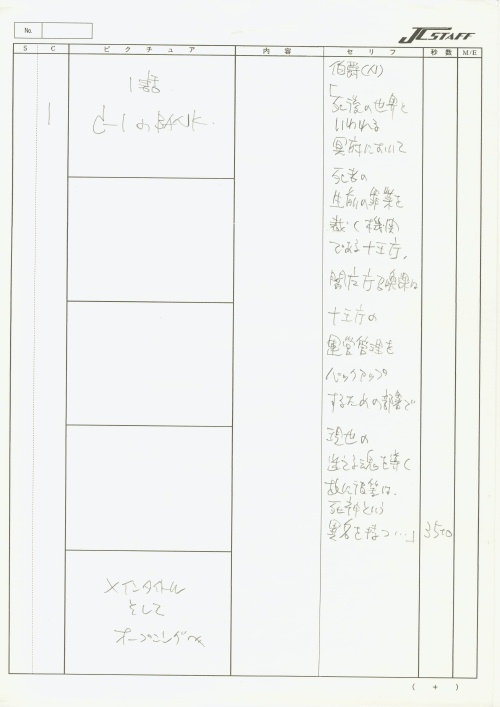 No.
J.C.STAFF
S C ピクチュア 内容 セリフ 秒数 M/E
1
1話
C-1のBANK.
伯爵(N)
「
死後の世界と
いわれる
冥府において
死者の
生前の罪業を
裁く機関
である十王庁。
閻魔庁
十王庁の
運営管理を
バックアップ
するための部署で
現世の
迷える魂を導く
故に彼等は、
死神という
異名を持つ…」
35+0
メインタイトル
そして
オープニングへ
( + )